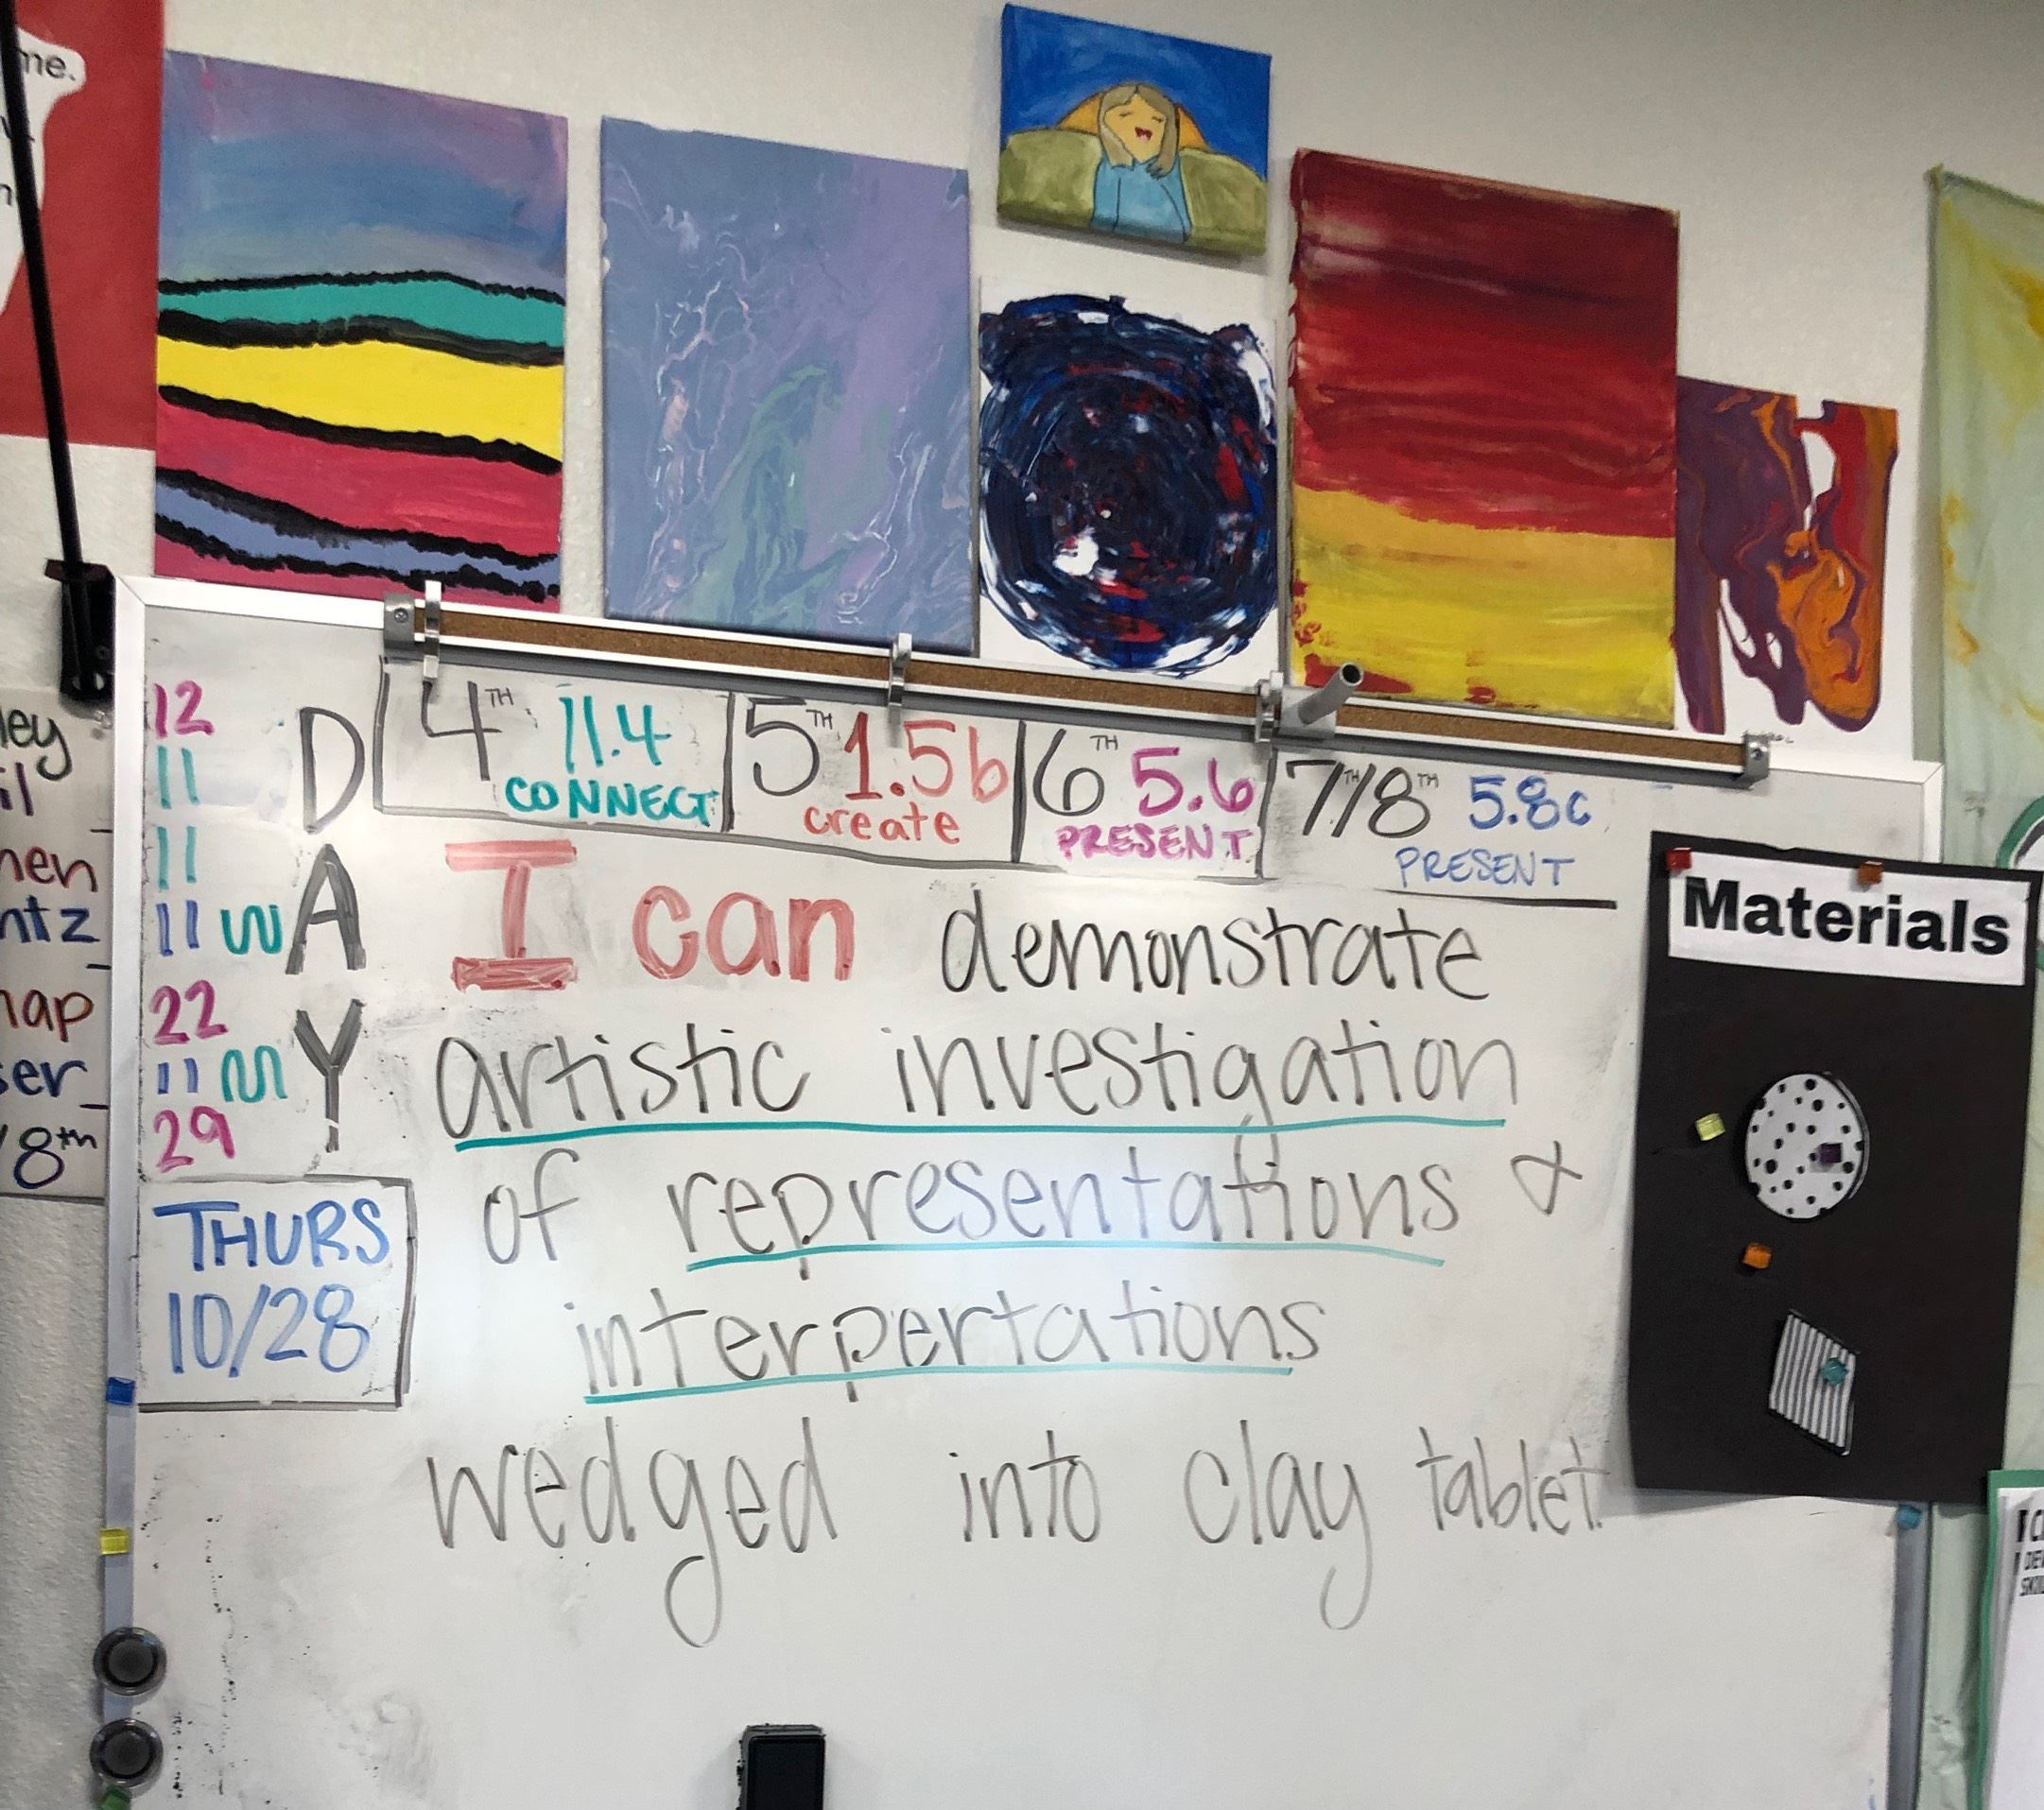 me.
12
11
11
11 W
22
11 M
29
D
A
Y
4TH 11.4
CONNECT
5TH 1.5b
create
6TH 5.6
PRESENT
7TH/8TH 5.8c
PRESENT
I can demonstrate
artistic investigation
of representations &
interpertations
wedged into clay tablet.
THURS
10/28
Materials
ley
il
hen
ntz
hap
ser
/8th